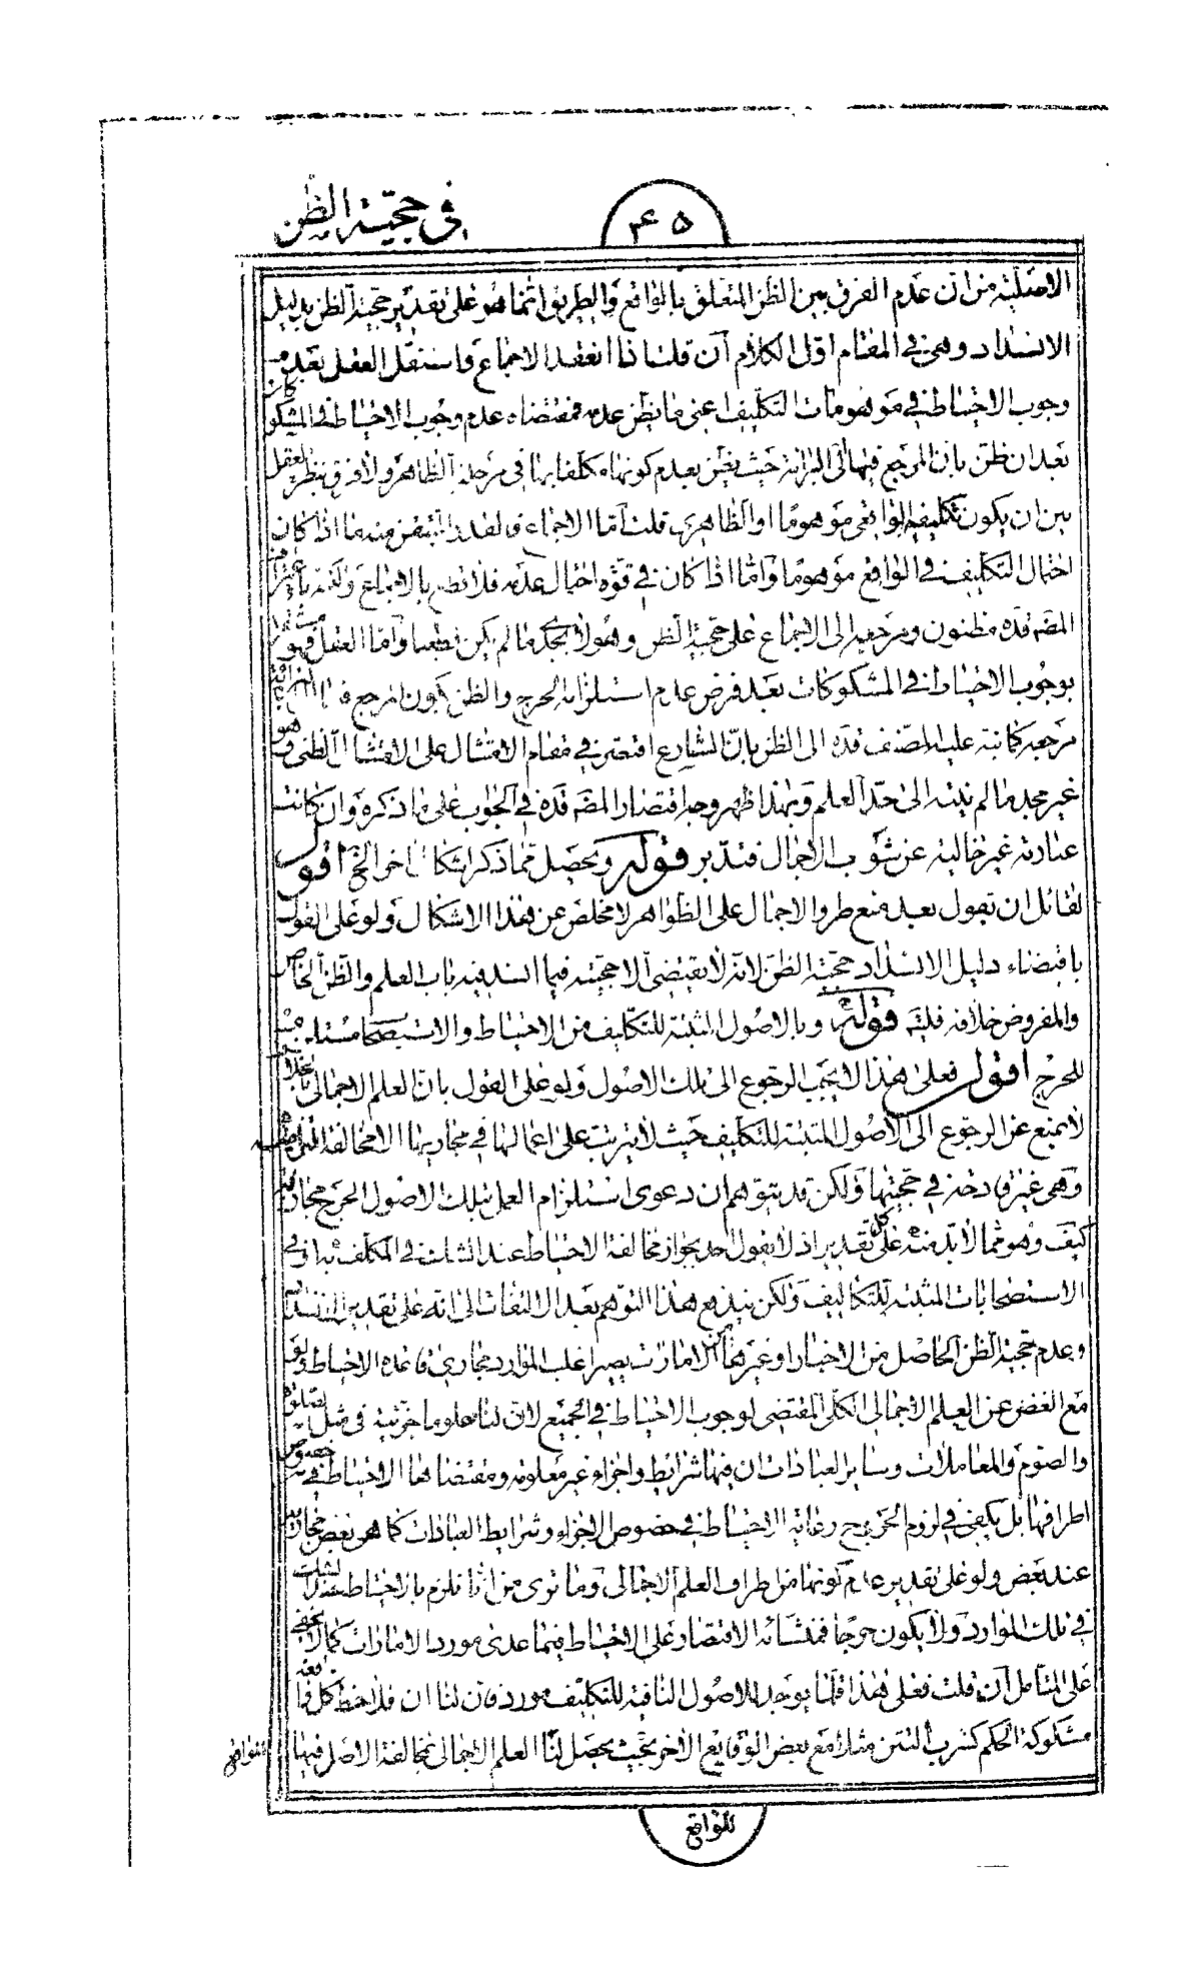 في حجّيّة الظن
۴۵
الاصليّة من ان عدم الفرق بين الظن المتعلق بالواقع والطريق انّما هو على تقدير حجيّة الظن بدليل
الانسداد وهى في المقام اوّل الكلام ان قلت اذا انعقد الاجماع واستقل العقل بعدم
وجوب الاحتياط في موهومات التكليف اعنى ما نظن عدمه فمقتضاه عدم وجوب الاحتياط في المشكوكات
بعد ان ظن بان المرجع فيها الى البرائة حيث نظن بعدم كونها مكلفا بها في مرحلة الظاهر ولا فرق بنظر العقل
بين ان يكون تكليفه الواقعى موهومًا او الظاهرى قلت امّا الاجماع فالقدر المتيقن منه ما اذا كان
احتمال التكليف في الواقع موهومًا وامّا اذا كان في قوّة احتمال عدمه فلا نطّلع بالاجماع ولكنه باعتراف
المصّ قدّه مظنون ومرجعه الى الاجماع على حجيّة الظن وهو لا يجدى ما لم يكن قطعيا وامّا العقل فهو مستقل
بوجوب الاحتياط في المشكوكات بعد فرض عدم استلزامه الحرج والظن بكون المرجع فيها البرائة
مرجعه كما نبّه عليه المصنف قدّه الى الظن بانّ الشارع اقتصر في مقام الامتثال على الامتثال الظنى وهو
غير مجد ما لم ينته الى حدّ العلم وبهذا ظهر وجه اقتصار المصّ قدّه في الجواب على ما ذكره وان كانت
عبارته غير خالية عن شوب الاجمال فتدبر قوله ويحصل ممّا ذكر اشكال اخر الخ اقول
لقائل ان يقول بعد منع طروّ الاجمال على الظواهر لا مخلص عن هذا الاشكال ولو على القول
باقتضاء دليل الانسداد حجيّة الظن لانه لا يقتضى الا حجيّته فيما انسد فيه باب العلم والظن الخاص
والمفروض خلافه فليتم قوله وبالاصول المثبتة للتكليف من الاحتياط والاستصحاب مستلزمة
للحرج اقول فعلى هذا لا يجب الرجوع الى تلك الاصول ولو على القول بانّ العلم الاجمالى بخلافها
لا يمنع عن الرجوع الى الاصول المثبتة للتكليف حيث لا يترتب على اعمالها في مجاريها الا مخالفة التزامية
وهى غير قادحة في حجيّتها ولكن قد يتوهم ان دعوى استلزام العمل بتلك الاصول الحرج مجازفة
كيف وهو ممّا لا بدّ منه على كل تقدير اذ لا يقول احد بجواز مخالفة الاحتياط عند الشك في المكلف به او في
الاستصحابات المثبتة للتكاليف ولكن يندفع هذا التوهم بعد الالتفات الى انه على تقدير الانسداد
وعدم حجيّة الظن الحاصل من الاخبار او غيرها من الامارات يصير اغلب الموارد مجارى قاعدة الاحتياط ولو
مع الغض عن العلم الاجمالى الكلى المقتضى لوجوب الاحتياط في الجميع لانّ لنا علوما جزئية في مثل الصلوة
والصوم والمعاملات وساير العبادات ان فيها شرائط واجزاء غير معلومة ومقتضاها الاحتياط في
اطرافها بل يكفى في لزوم الحرج رعاية الاحتياط في خصوص الاجزاء وشرايط العبادات كما هو بعض مجاريه
عند بعض ولو على تقدير عدم كونها من اطراف العلم الاجمالى وما نرى من انّا نلتزم بالاحتياط عند الشك
في تلك الموارد ولا يكون حرجا فمنشائه الاقتصار على الاحتياط فيما عدى مورد الامارات كما لا يخفى
على المتأمل ان قلت فعلى هذا قلّما يوجد للاصول النافية للتكليف مورد فان لنا ان نلاحظ كل واقعة
مشكوكة الحكم كشرب التتن مثلا مع بعض الوقايع الاخر بحيث يحصل لنا العلم الاجمالى بمخالفة الاصل فيها
للواقع
للواقع